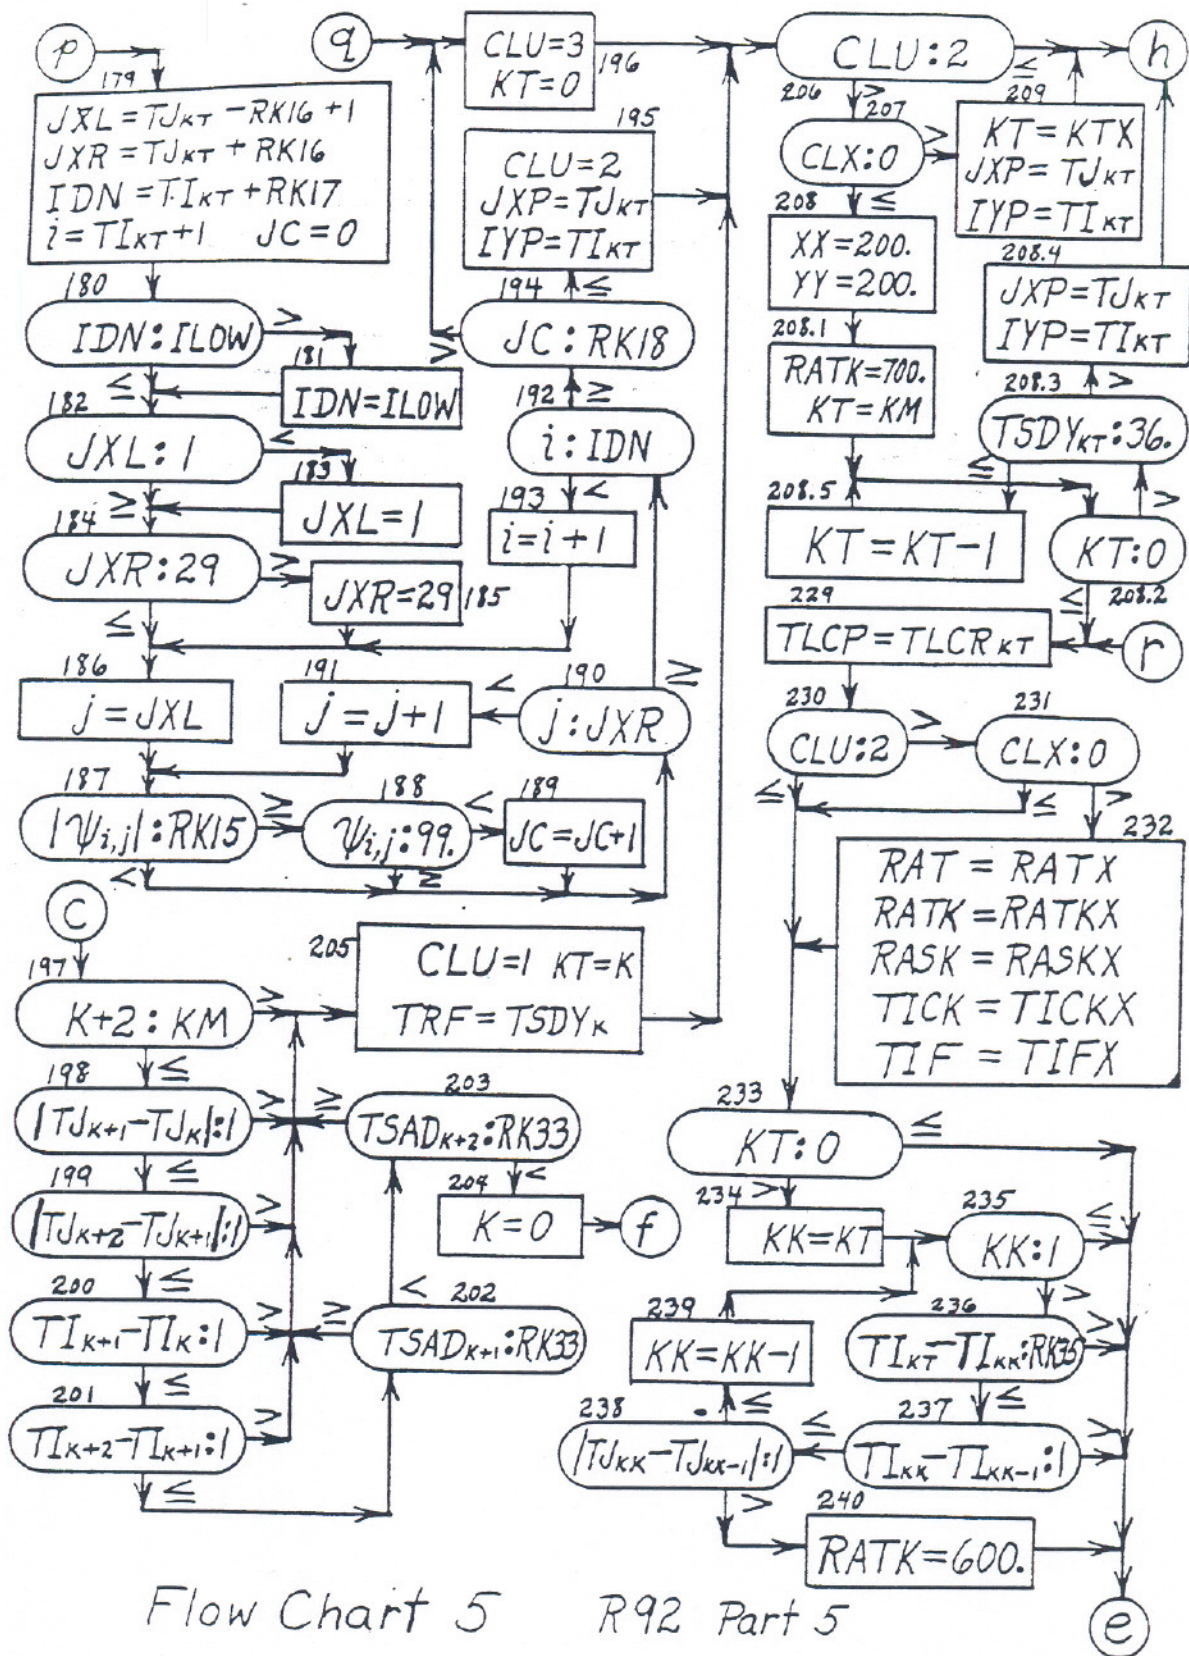 p
179
JXL=TJKT-RK16+1
JXR=TJKT+RK16
IDN=TIKT+RK17
i=TIKT+1 JC=0
180
IDN:ILOW
>
181
IDN=ILOW
≤
182
JXL:1
<
183
JXL=1
≥
184
JXR:29
>
JXR=29
185
≤
186
j=JXL
191
j=j+1
<
190
j:JXR
≥
187
|Ψi,j|:RK15
≥
188
Ψi,j:99.
<
189
JC=JC+1
<
≥
q
CLU=3
KT=0
196
195
CLU=2
JXP=TJKT
IYP=TIKT
194
≤
JC:RK18
>
192
≥
i:IDN
193
<
i=i+1
C
197
K+2:KM
>
≤
198
|TJK+1-TJK|:1
>
≤
199
|TJK+2-TJK+1|:1
>
≤
200
TIK+1-TIK:1
>
≤
201
TIK+2-TIK+1:1
>
≤
205
CLU=1 KT=K
TRF=TSDYK
203
≥
TSAD K+2:RK33
204
<
K=0
f
<
202
≥
TSAD K+1:RK33
CLU:2
≤
h
206
>
207
CLX:0
>
209
KT=KTX
JXP=TJKT
IYP=TIKT
208
≤
XX=200.
YY=200.
208.1
RATK=700.
KT=KM
208.4
JXP=TJKT
IYP=TIKT
208.3
>
TSDYKT:36.
≤
208.5
KT=KT-1
>
KT:0
≤
208.2
229
TLCP=TLCRKT
r
230
CLU:2
>
231
CLX:0
≤
≤
>
232
RAT=RATX
RATK=RATKX
RASK=RASKX
TICK=TICKX
TIF=TIFX
233
KT:0
≤
234
>
KK=KT
235
KK:1
≤
236
>
TIKT-TIKK:RK35
>
≤
237
TIKK-TIKK-1:1
>
≤
238
|TJKK-TJKK-1|:1
≤
239
KK=KK-1
>
240
RATK=600.
e
Flow Chart 5 R92 Part 5